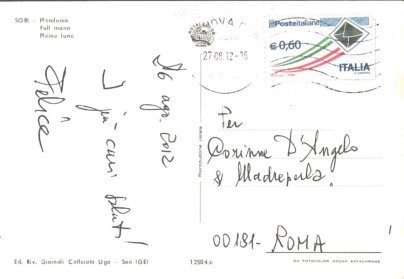 SORI - Plenilunio
Full moon
Pleine lune
GENOVA
27.08.12-16
Posteitaliane
€ 0,60
ITALIA
26 ago. 2012
I più cari saluti!
Felice
Riproduzione vietata
Per
Corinne D'Angelo
& Madreperla.
00181- ROMA
Ed. Riv. Giornali Cafferata Ugo - Sori (GE)
1250-f.c.
DA FOTOCOLOR KODAK EKTACHROME